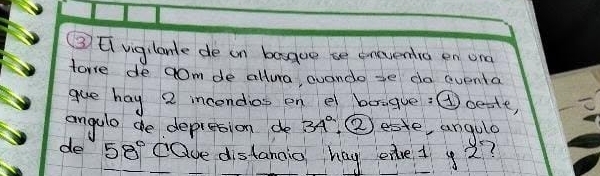 ③ El vigilante de un bosque se encuentra en una
torre de 90m de altura, cuando se da cuenta
que hay 2 incendios en el bosque: ① oeste,
angulo de depresion de 34°, ② este, angulo
de 58° ¿Que distancia hay entre 1 y 2?